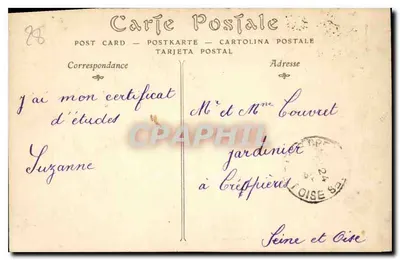 28
Carte Postale
POST CARD – POSTKARTE – CARTOLINA POSTALE
TARJETA POSTAL
Correspondance
Adresse
j'ai mon certificat
d'études
Suzanne
Mr et Mme Couvret
jardinier
à Crespières
Seine et Oise
CPAPHIL
24
OISE